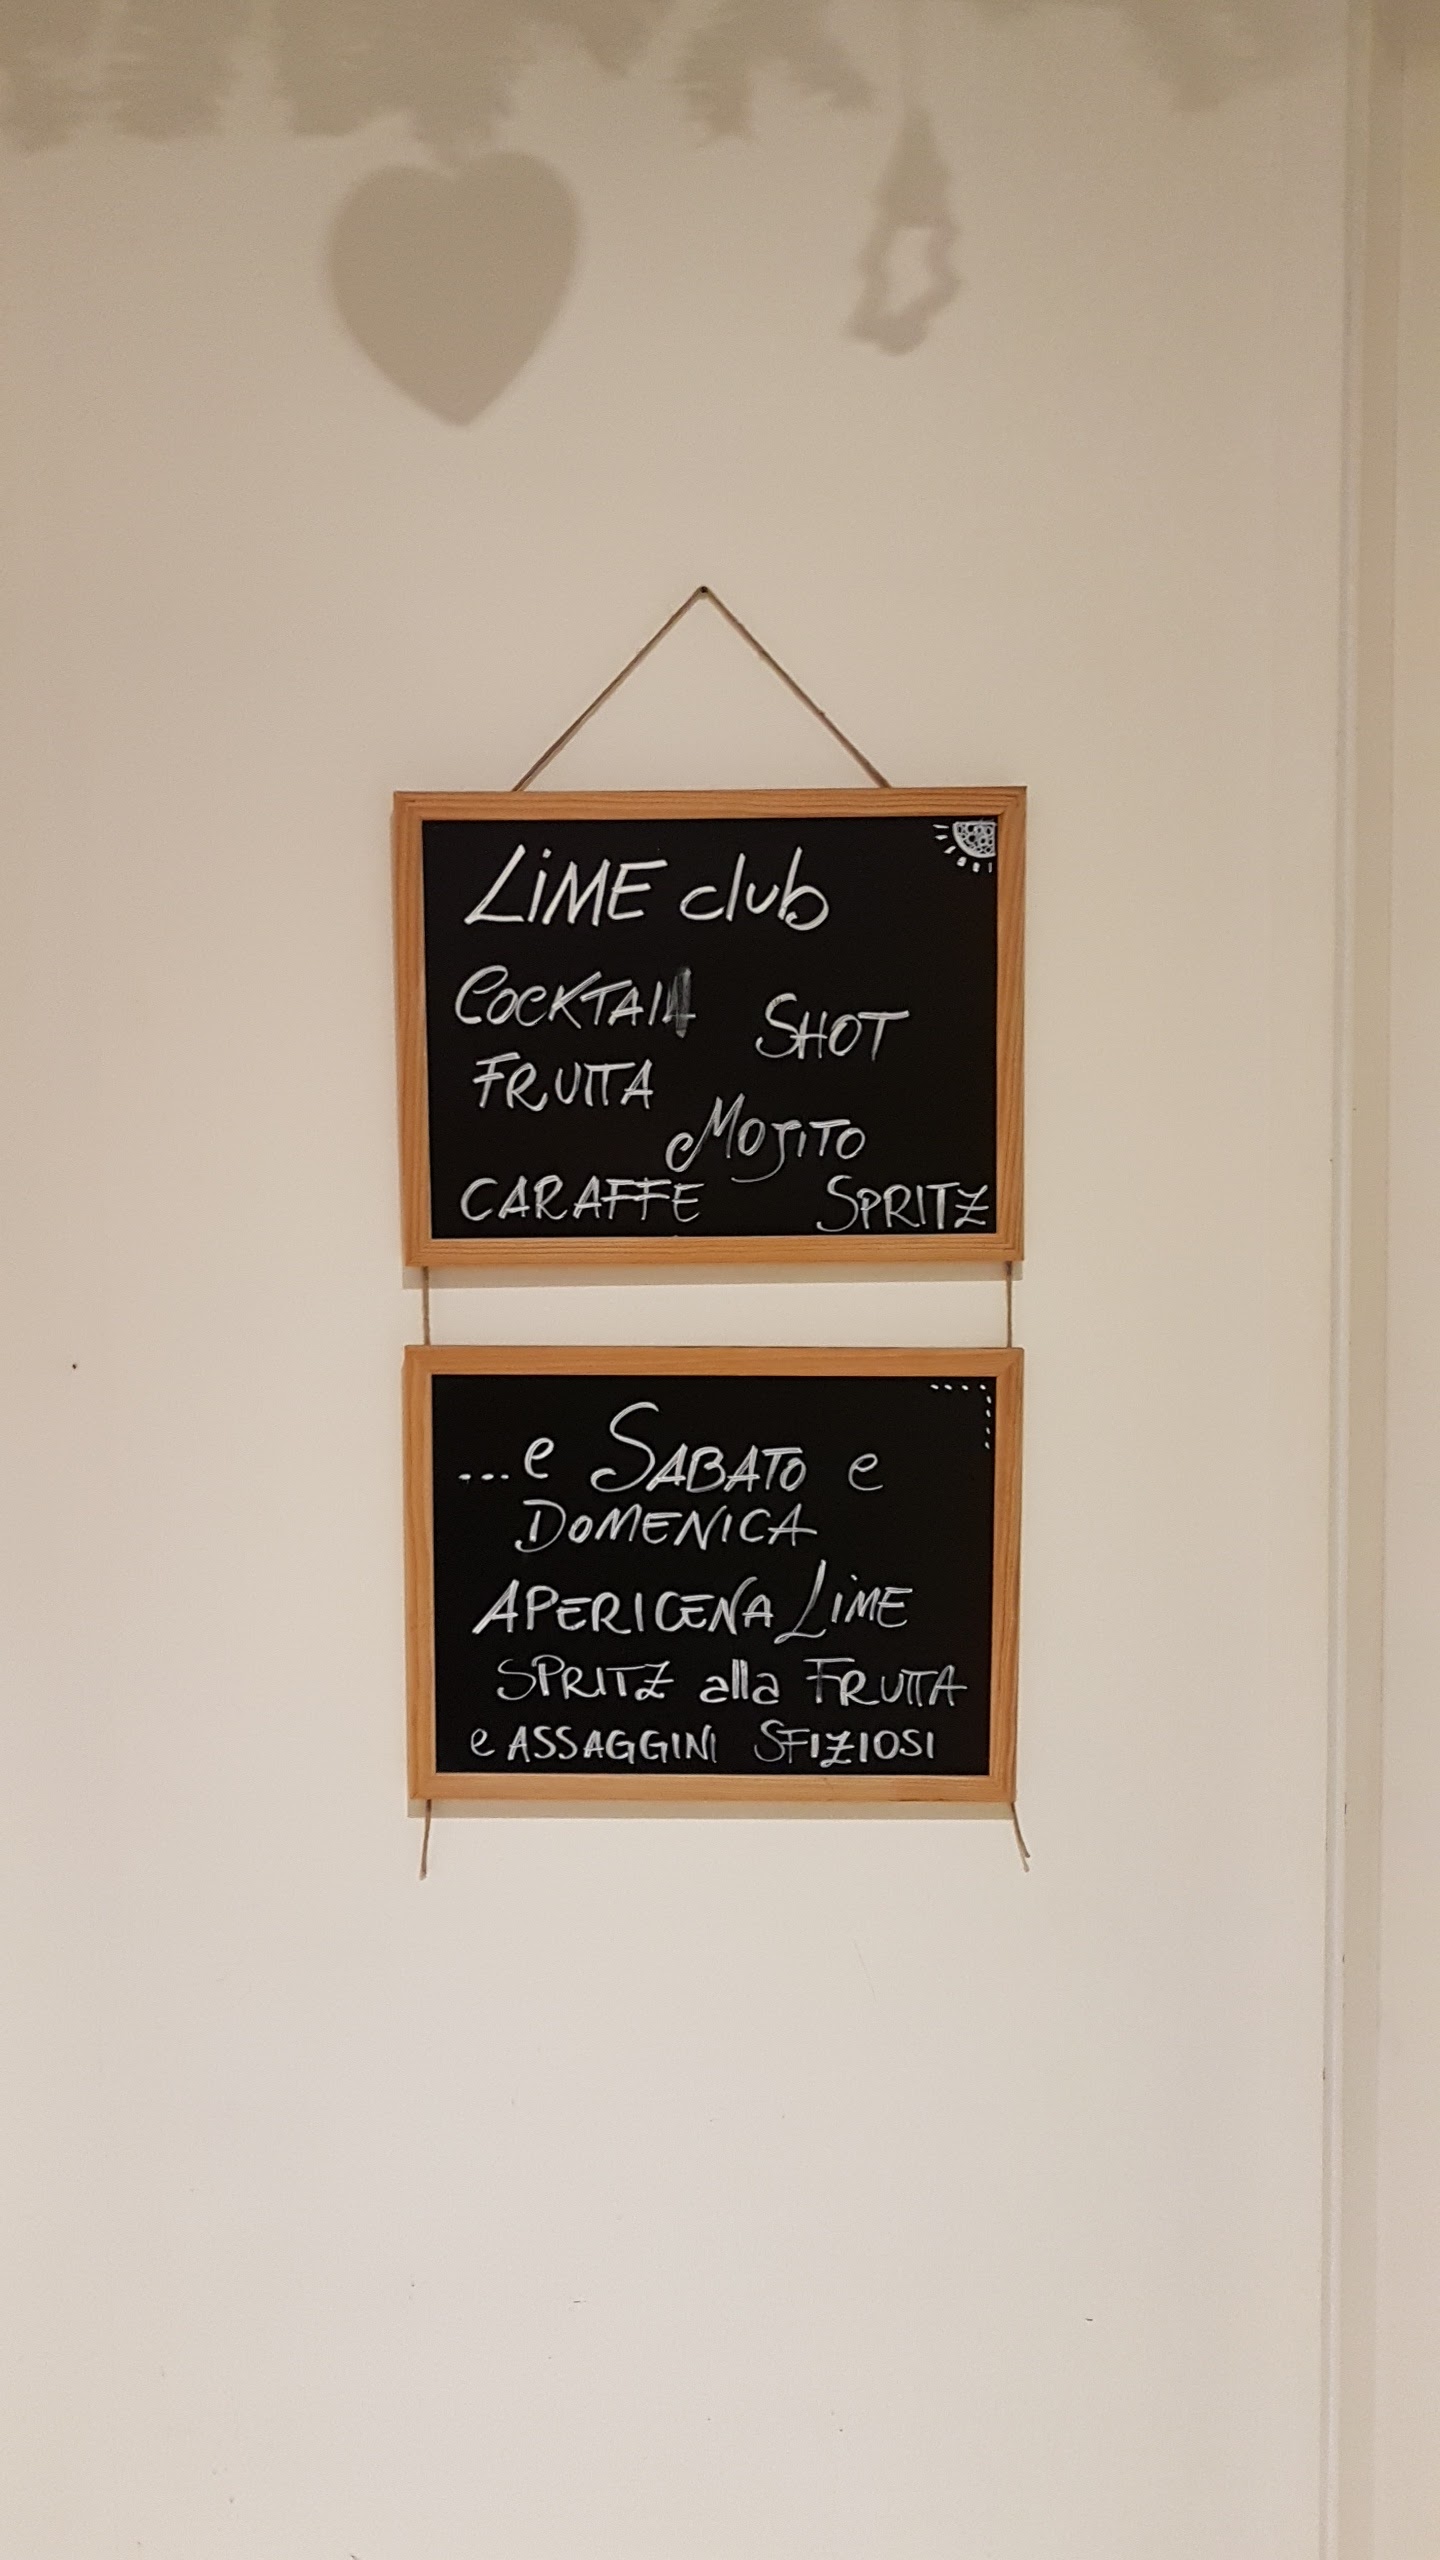 LiME club
COCKTAIL
SHOT
FRUTTA
MOJITO
CARAFFE
SPRITZ
...e SABATO e
DOMENICA
APERICENA LiME
SPRITZ alla FRUTTA
e ASSAGGINI SFIZIOSI